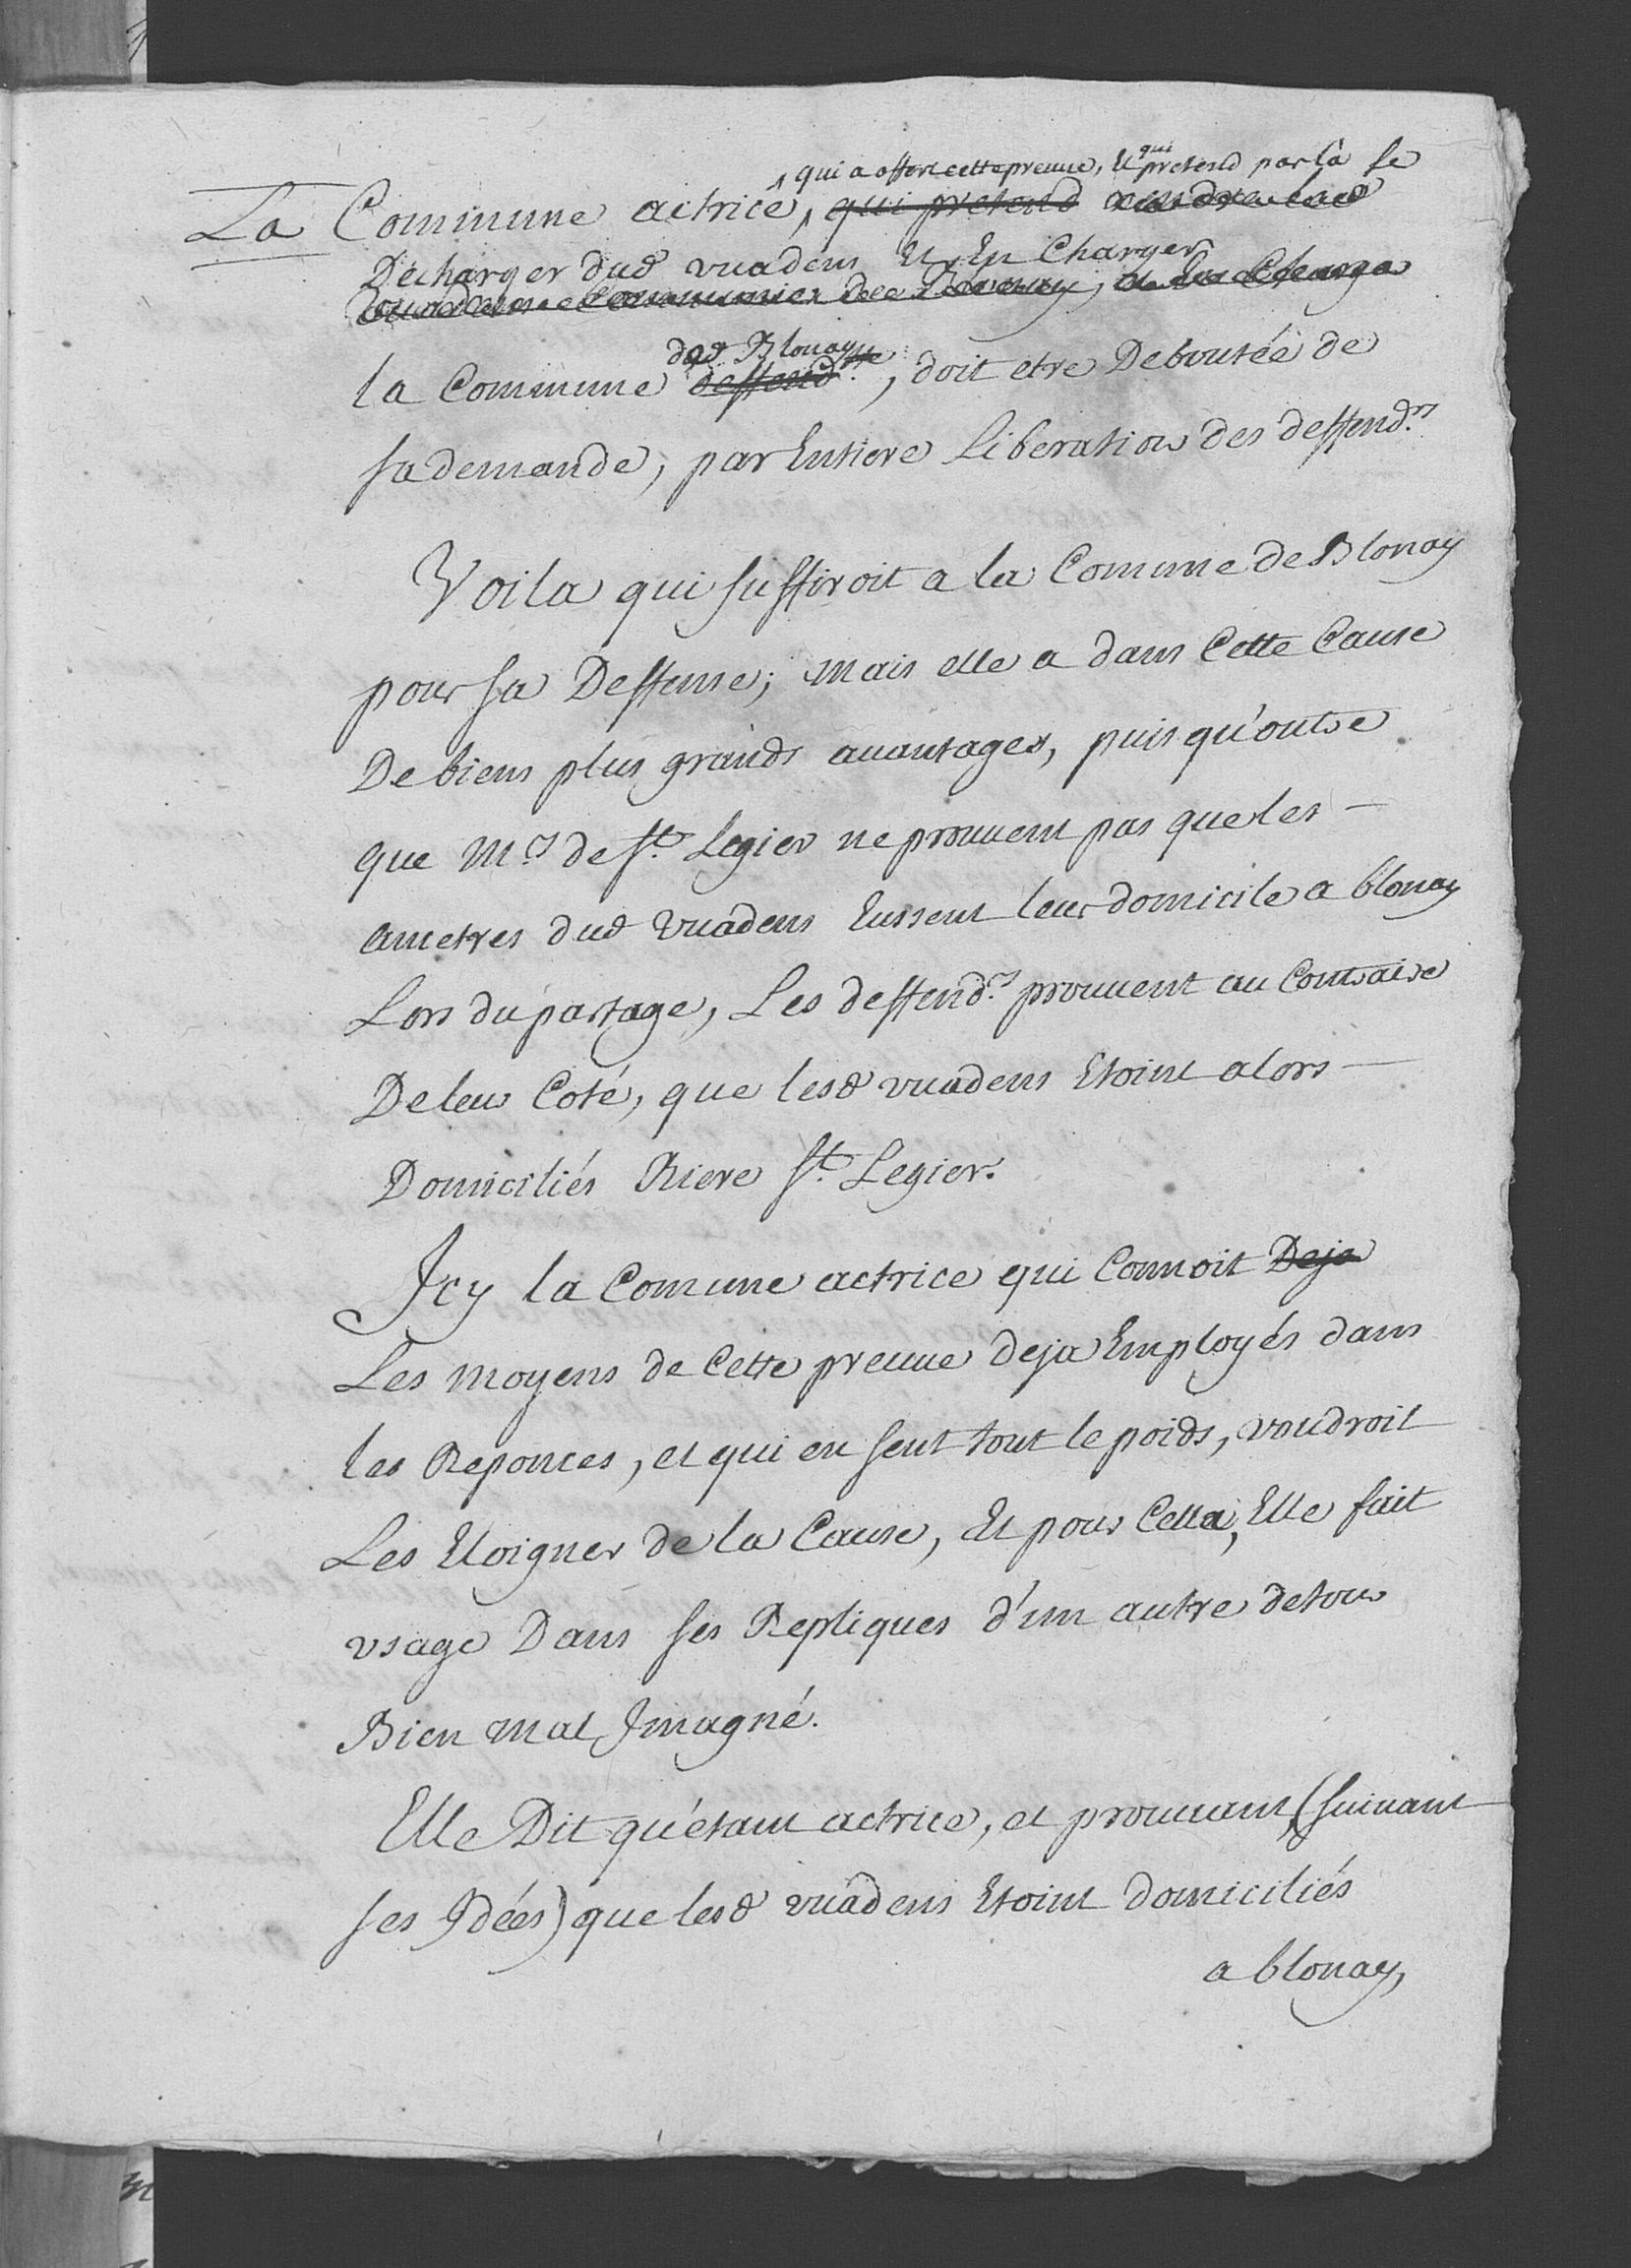 qui a offert cette preuve, et qui pretend par là se
La Commune actrice, qui pretend
Décharger dud vuadens Et En Charger
la Commune ded Blonay deffend.te, doit etre Deboutée de
sa demande, par Entiere Liberation des deffend.rs
Voila qui suffiroit a la Comune de Blonay
pour sa Deffense; mais elle a dans Cette Cause
De biens plus grands avantages, puis qu'outre
que M.rs de St. Legier ne prouvent pas que les –
ancetres dud vuadens Eussent leur domicile a blonay
Lors du partage, Les deffend.rs prouvent au Contraire
De leur Coté, que lesd vuadens Etoint alors –
Domiciliés Riere St. Legier.
Jcy la Comune actrice qui Connoit Deja
Les moyens de Cette preuve deja Employés dans
les Reponces, et qui en sent tout le poids, voudroit
Les Eloigner de la Cause, Et pour Cella, Elle fait
vsage Dans ses Repliques d'un autre detour
Bien mal Jmagné.
Elle Dit qu'étant actrice, et prouvant (suivant
ses Jdées) que lesd vuadens Etoint domiciliés
a blonay,